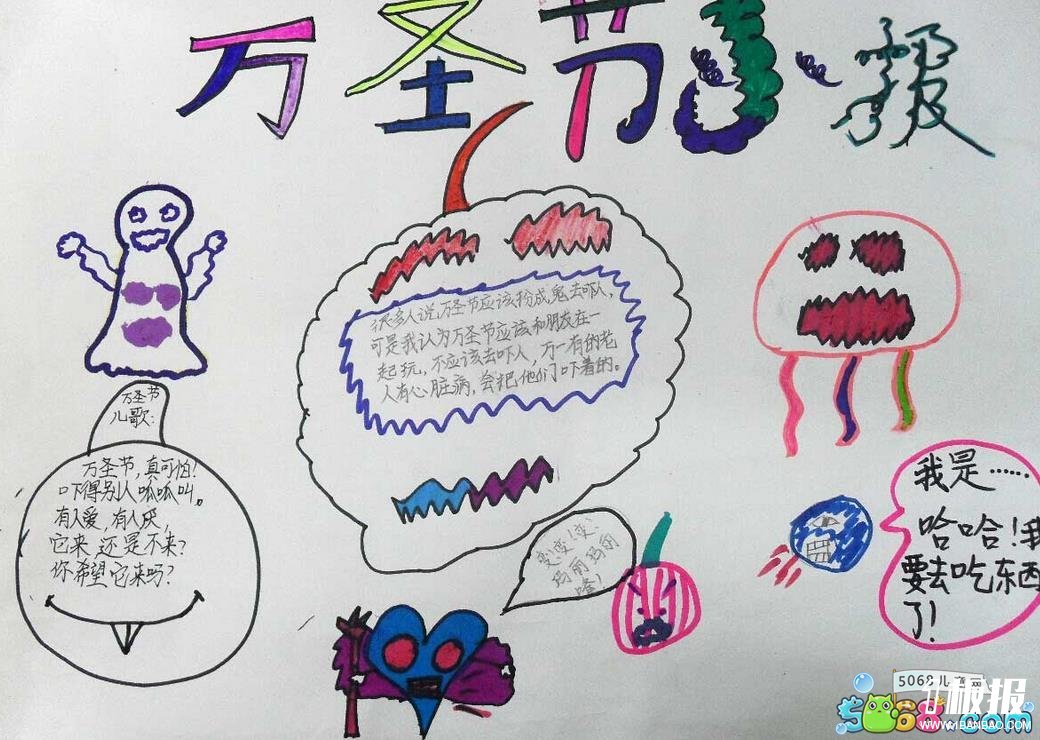 万圣节小報
很多人说,万圣节应该扮成鬼去吓人,
可是我认为万圣节应该和朋友在一
起玩,不应该去吓人,万一有的老
人有心脏病,会把他们吓着的。
万圣节
儿歌:
万圣节,真可怕!
吓得别人呱呱叫。
有人爱,有人厌,
它来,还是不来?
你希望它来吗?
变!变!变!
玛丽玛丽
哞!
我是……
哈哈!我
要去吃东西
了!
5068儿童网
5068.com
板报
WWW.1BANBAO.COM